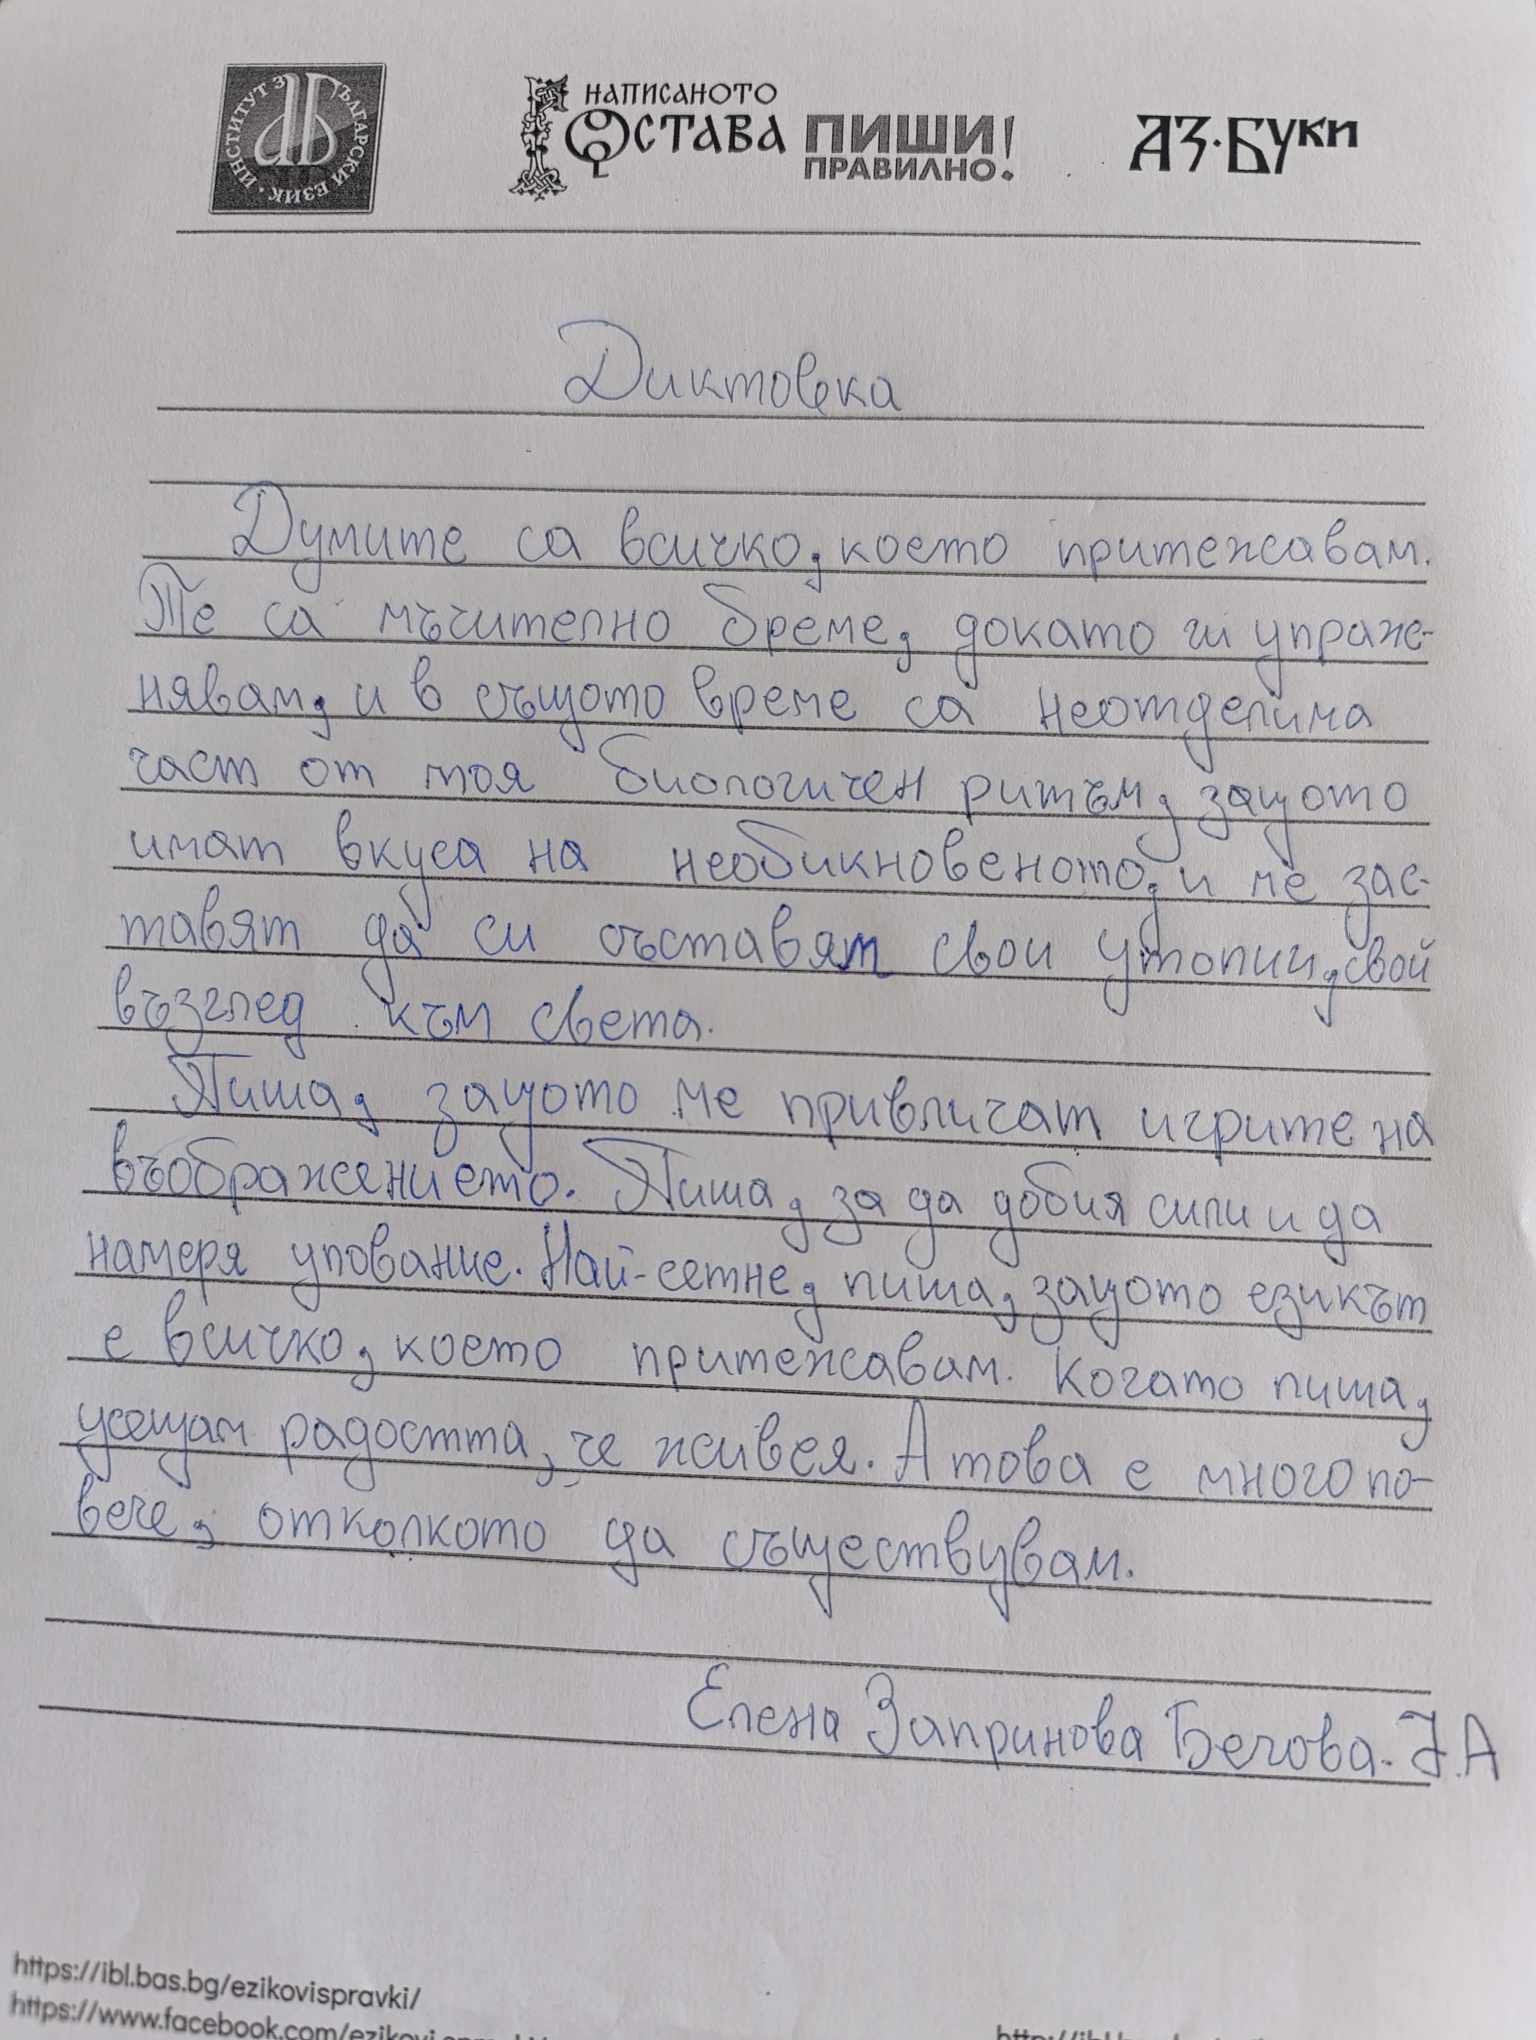 ИНСТИТУТ ЗА БЪЛГАРСКИ ЕЗИК
НАПИСАНОТО
ОСТАВА ПИШИ!
ПРАВИЛНО!
АЗ·БУКИ
Диктовка
Думите са всичко, което притежавам.
Те са мъчително бреме, докато ги упраж-
нявам, и в същото време са неотделима
част от моя биологичен ритъм, защото
имат вкуса на необикновеното, и ме зас-
тавят да си съставям свои утопии, свой
възглед към света.
Пиша, защото ме привличат игрите на
въображението. Пиша, за да добия сили и да
намеря упование. Най-сетне, пиша, защото езикът
е всичко, което притежавам. Когато пиша,
усещам радостта, че живея. А това е много по-
вече, отколкото да съществувам.
Елена Запринова Бечова. 7.А
https://ibl.bas.bg/ezikovispravki/